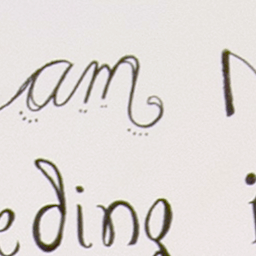 am
eding